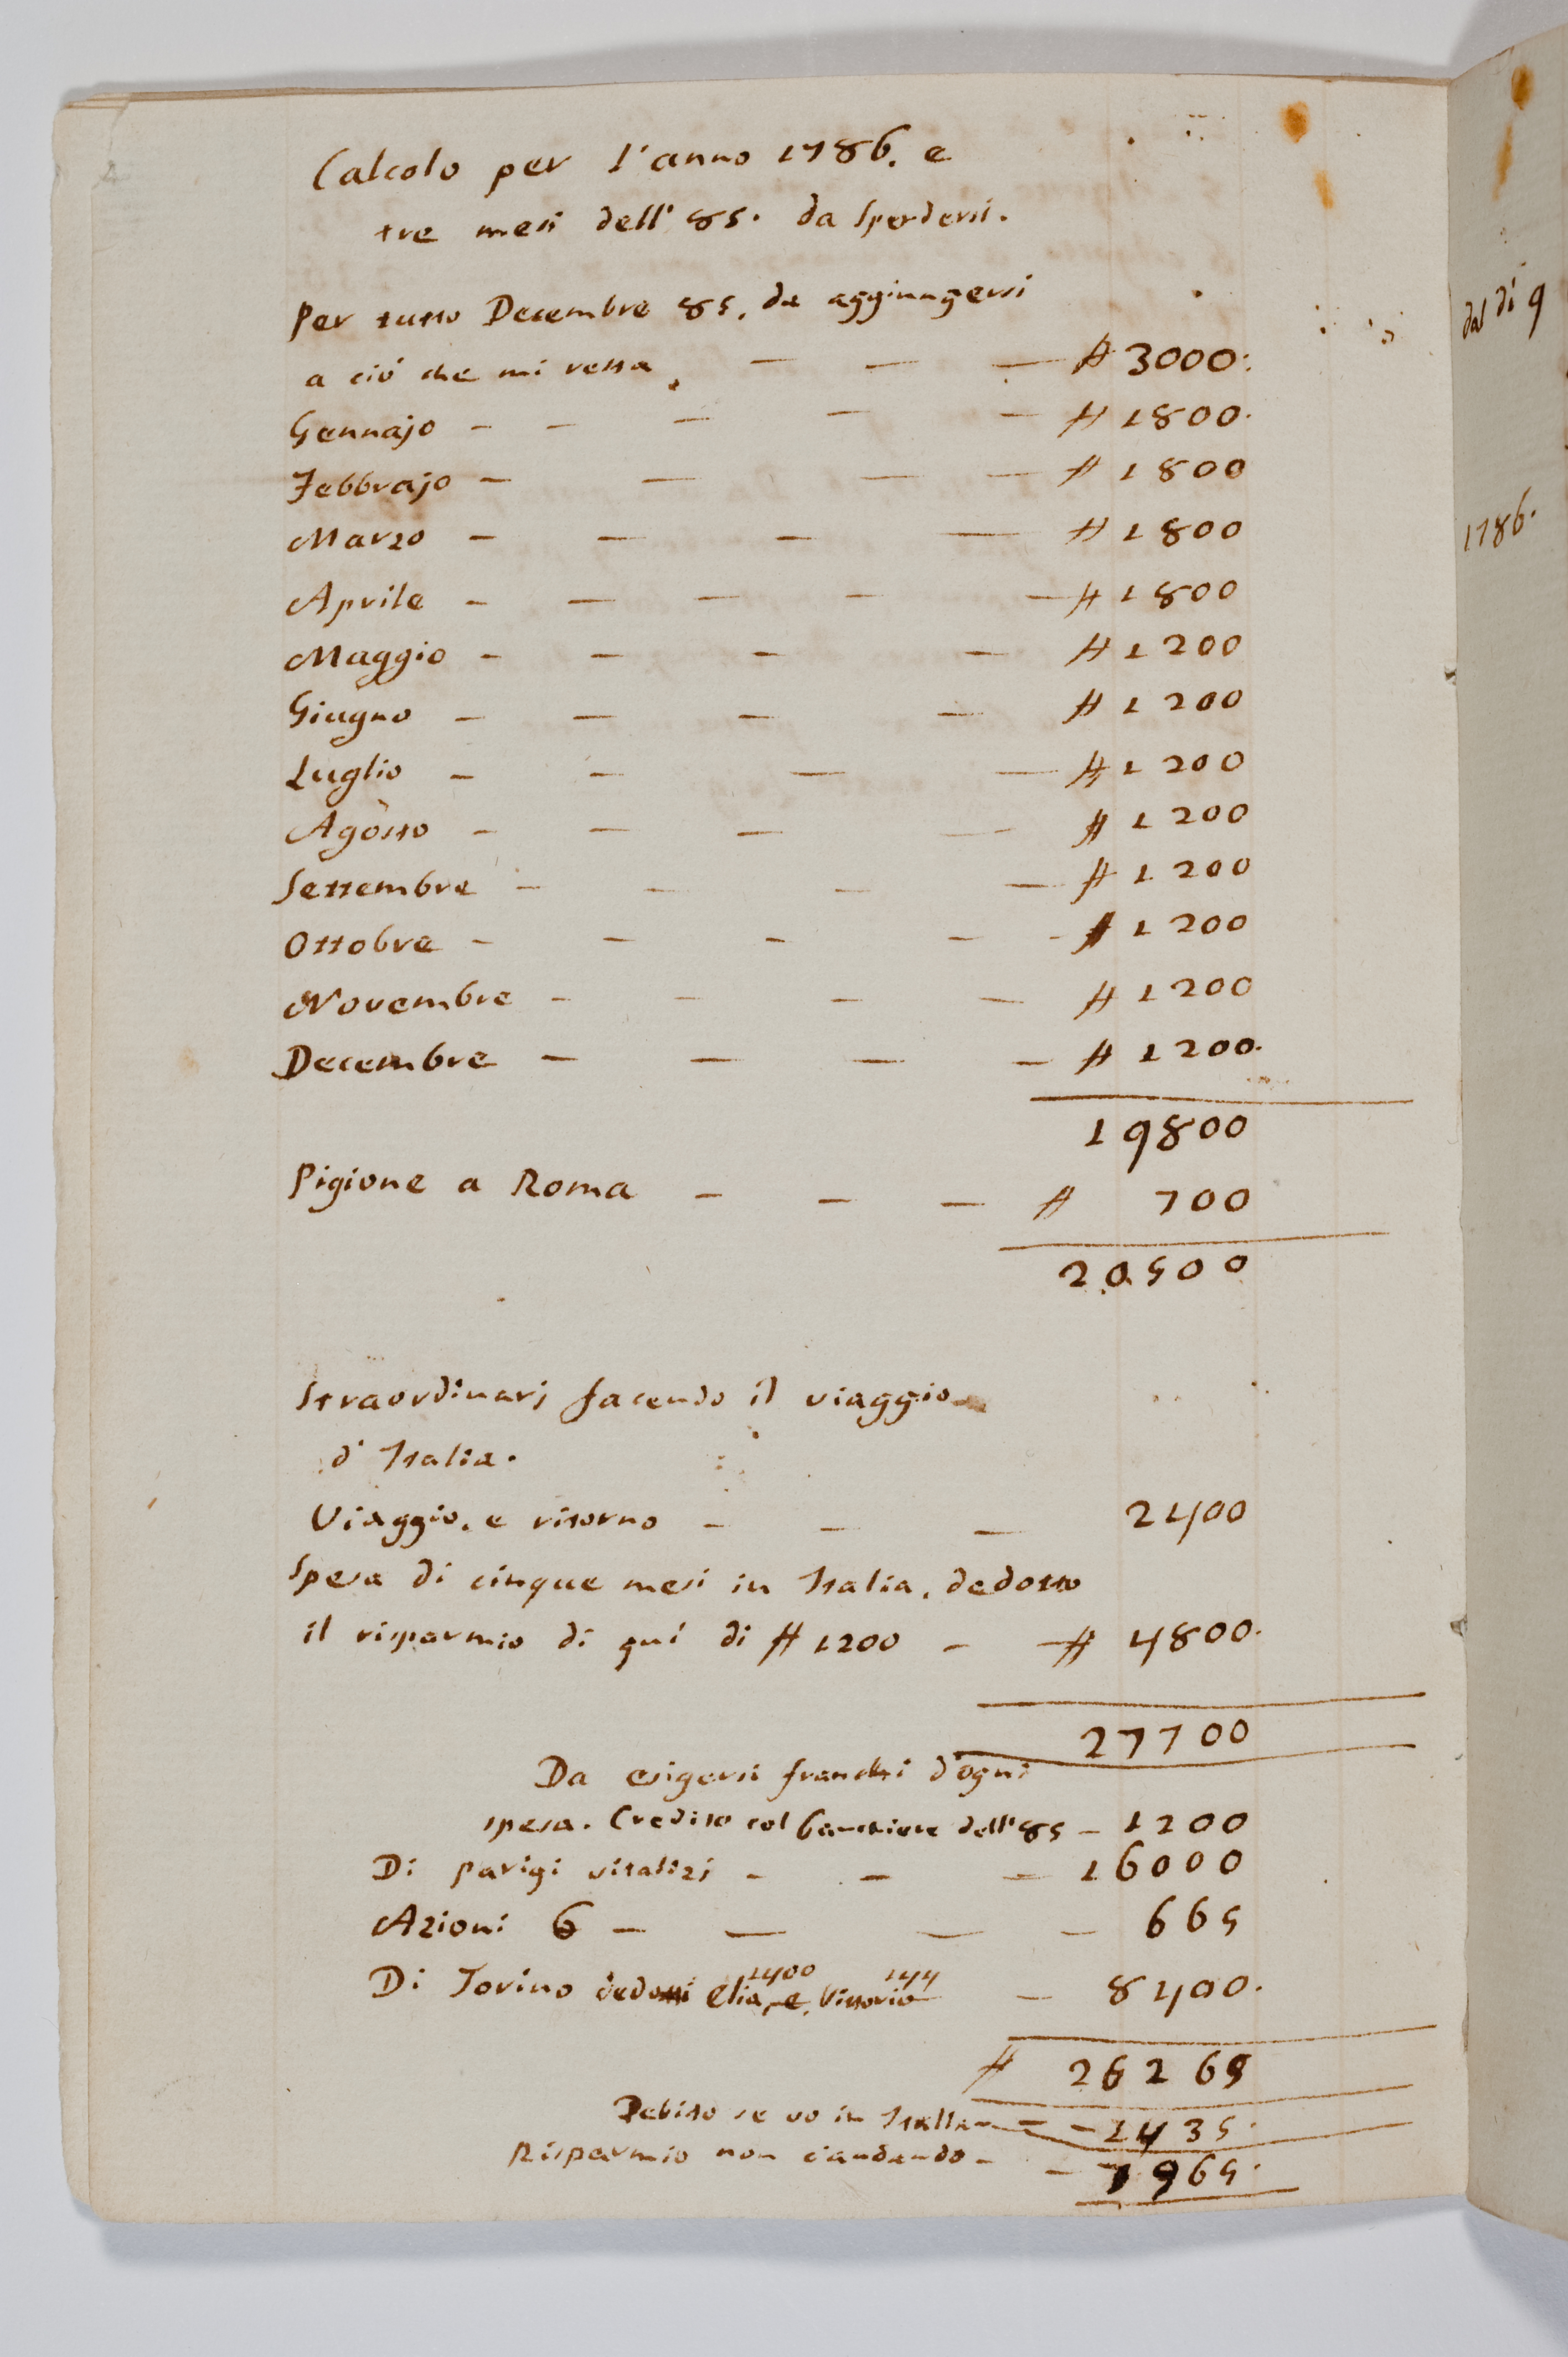 Calcolo per l'anno 1786. e
tre mesi dell' 85. da spendersi.
Per tutto Decembre 85. da aggiungersi
a ciò che mi resta. — — — ₶ 3000.
Gennajo - - — — — ₶ 1800.
Febbrajo - — — — ₶ 1800
Marzo - — — — ₶ 1800
Aprile - — — — — ₶ 1800
Maggio - — — — ₶ 1200
Giugno - — — — ₶ 1200
Luglio - — — — ₶ 1200
Agosto - — — — ₶ 1200
Settembre - — — — ₶ 1200
Ottobre - — — — - ₶ 1200
Novembre - — — — ₶ 1200
Decembre — — — — ₶ 1200.
19800
Pigione a Roma — — — ₶ 700
20500
Straordinarj facendo il viaggio
d'Italia.
Viaggio, e ritorno - — — 2400
Spesa di cinque mesi in Italia, dedotto
il risparmio di quì di ₶ 1200 - — ₶ 4800.
27700
Da esigersi franchi d'ogni
spesa. Credito col banchiere dell' 85 - 1200
Di parigi vitalizj - — — 16000
Azioni 6 — — — - 665
1400 144
Di Torino dedotti Elia, e Vittorio - 8400.
₶ 26265
Debito se vo in Italia - - 1435.
Risparmio non c'andando - - 965.
dal dì 9
1786.